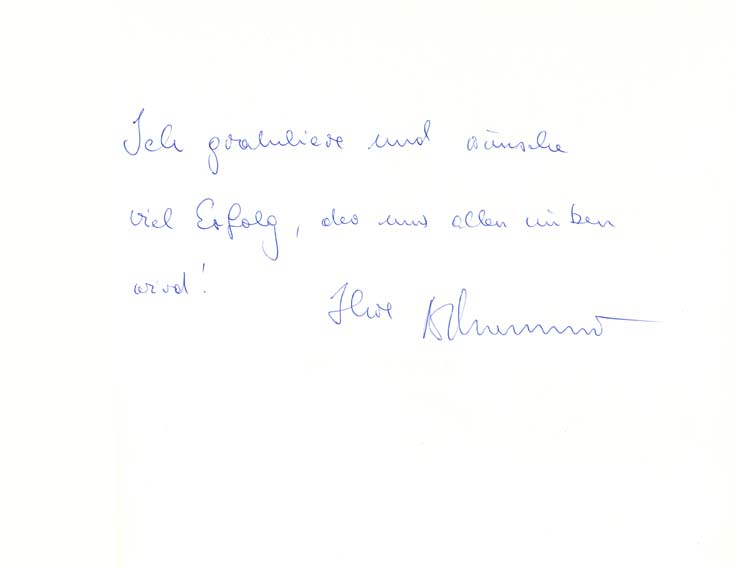 Ich gratuliere und wünsche
viel Erfolg, der uns allen nützen
wird!
Ihre